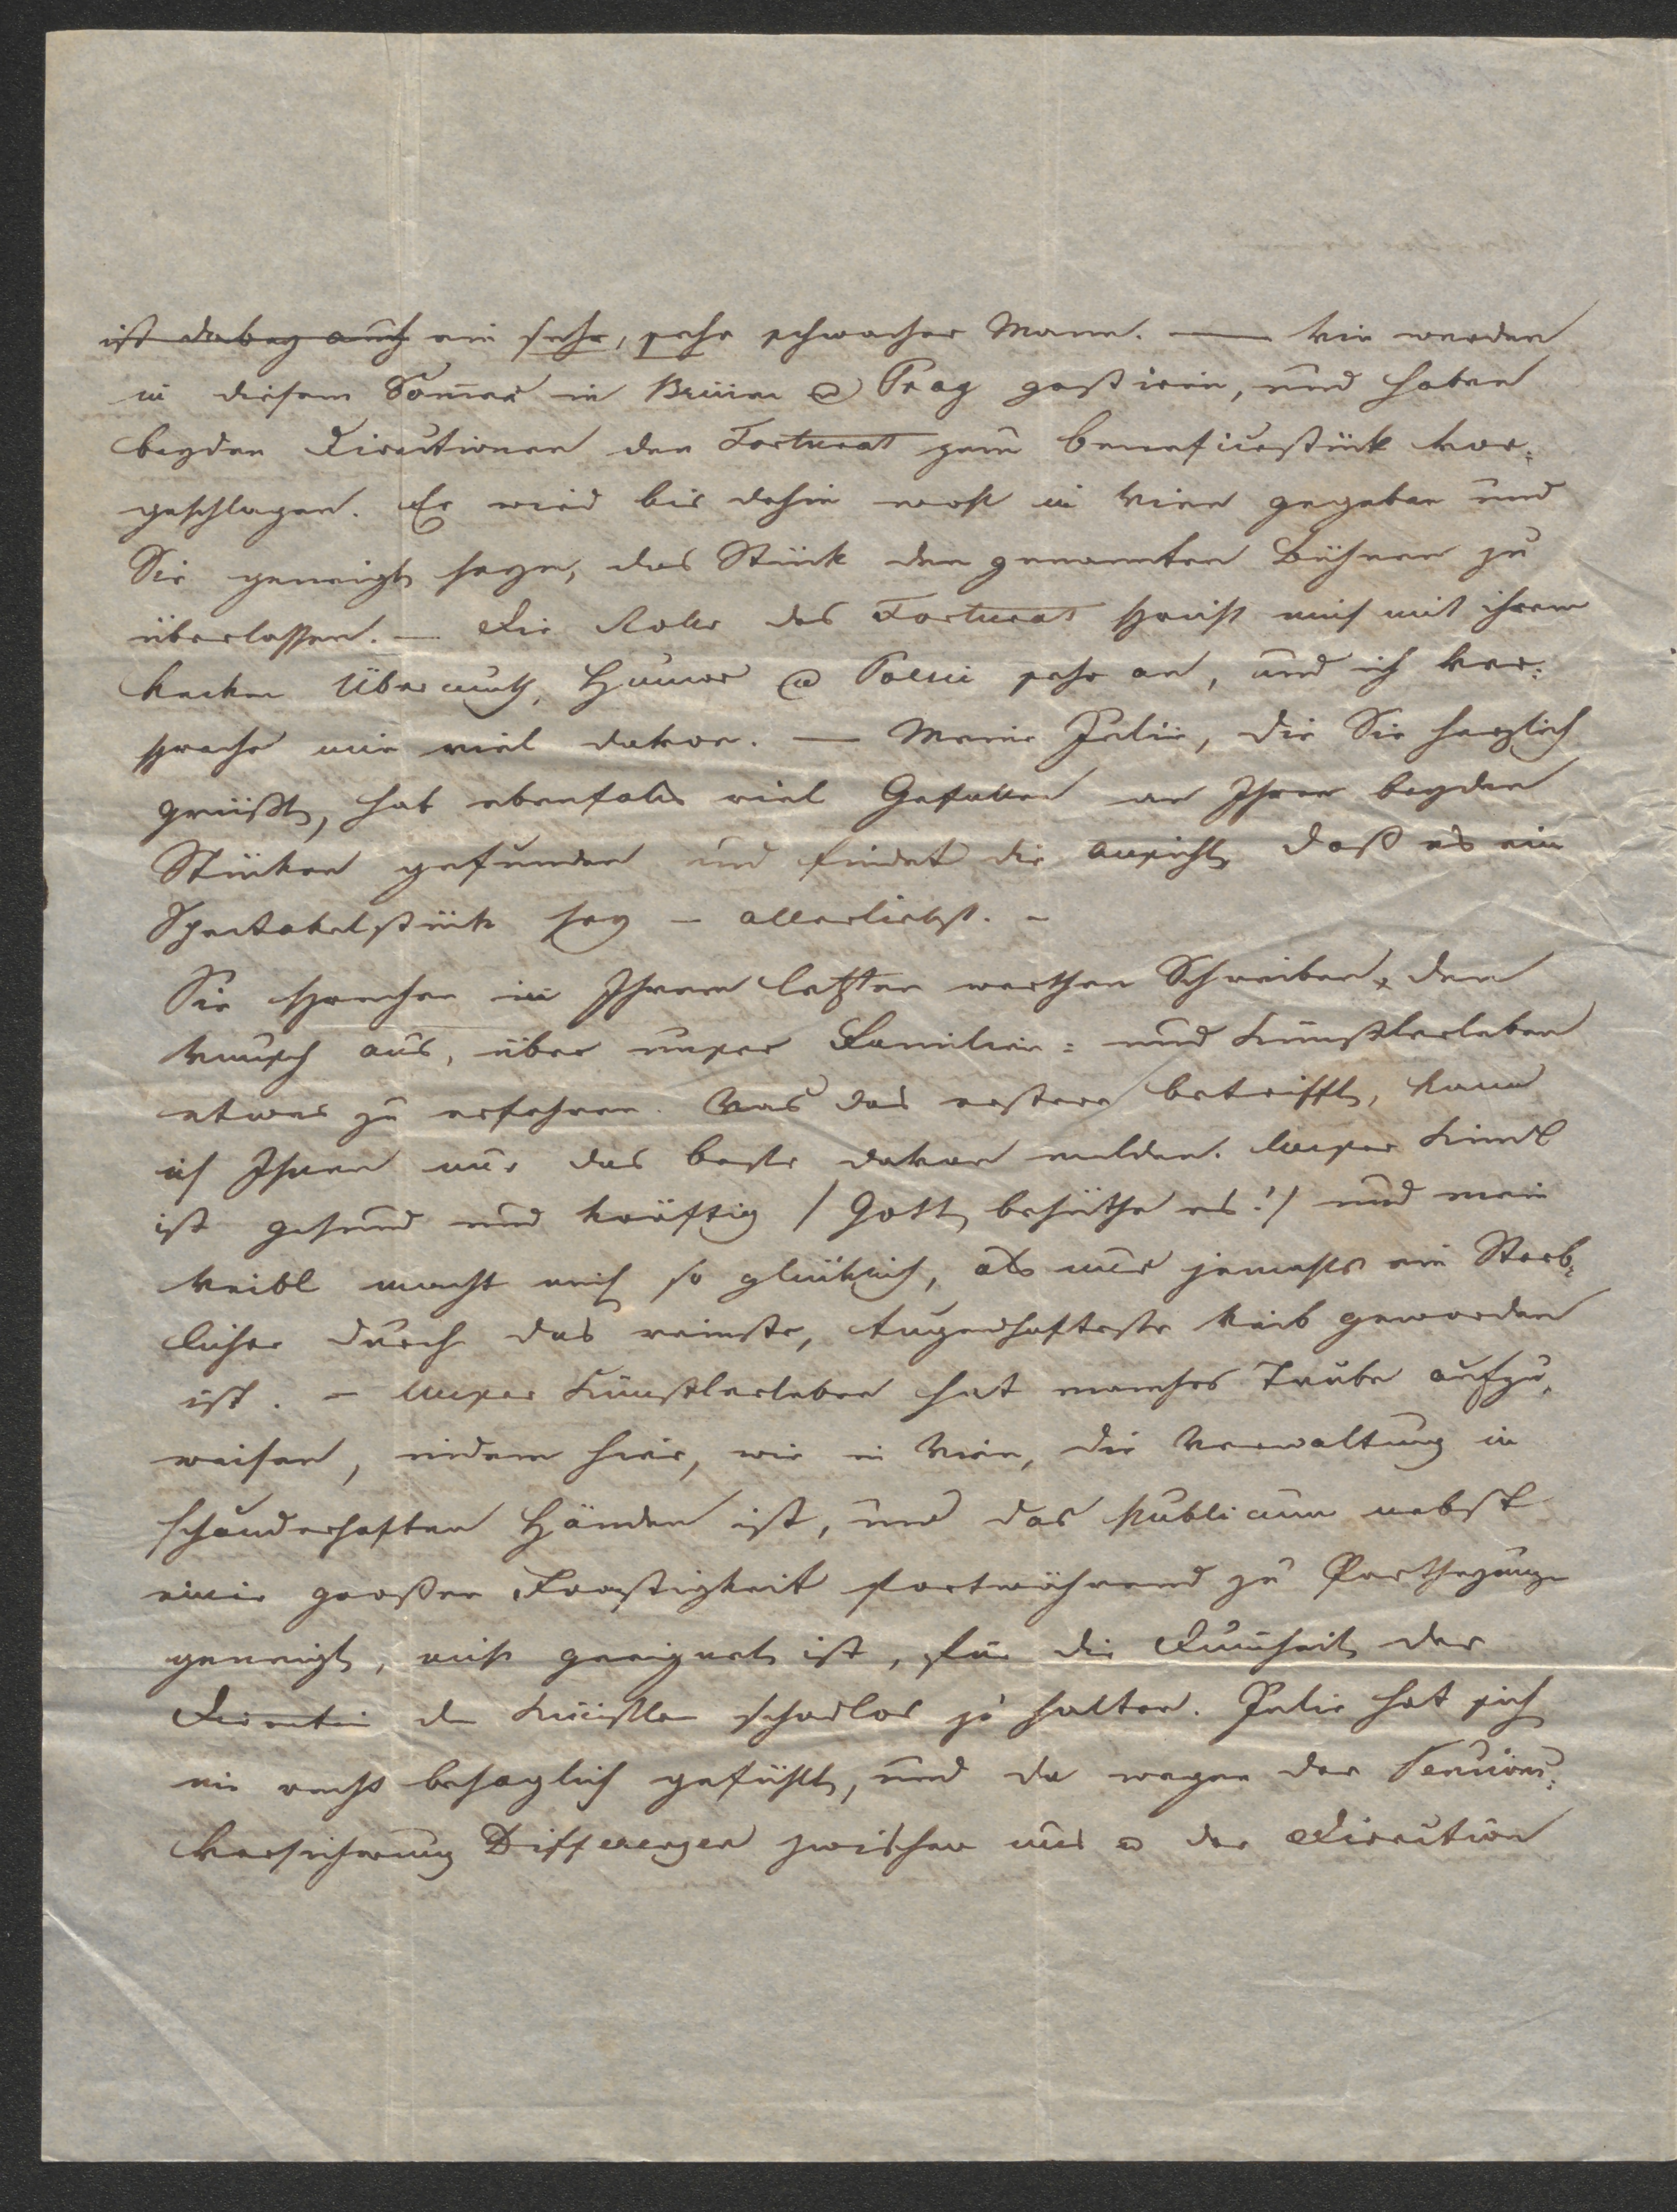 ist dabey auch ein sehr, sehr schwacher Mann. — Wir werden
in diesem Som̄er in Brünn & Prag gastiren, und haben
beyden Directionen den Fortunat zum Beneficestück vor-
geschlagen. Er wird bis dahin wohl in Wien gegeben und
Sie geneigt seyn, das Stück den genannten Bühnen zu
überlassen. — Die Rolle des Fortunat spricht mich mit ihrem
kecken Übermuth, Humor & Poesie sehr an, und ich ver-
spreche mir viel davon. — Meine Julie, die Sie herzlich
grüßt, hat ebenfalls viel Gefallen an Ihren beyden
Stücken gefunden und findet die Ansicht, daß es ein
Spectakelstück sey – allerliebst. –
Sie sprechen in Ihrem letzten werthen Schreiben, den
Wunsch aus, über unser Familien- und Künstlerleben
etwas zu erfahren. Was das erstere betrifft, kann
ich Ihnen nur das beste davon melden. Unser Kind
ist gesund und kräftig / Gott behüthe es! / und mein
Weibl macht mich so glücklich, als nur jemahls ein Sterb-
licher durch das reinste, tugendhafteste Weib geworden
ist. – Unser Künstlerleben hat manches Trübe aufzu-
weisen, indem hier, wie in Wien, die Verwaltung in
schauderhaften Händen ist, und das Publicum nebst
einer großen Frostigkeit fortwährend zu Partheyungen
geneigt, nicht geeignet ist, für die Dum̄heit der
Direction den Künstler schadlos zu halten. Julie hat sich
nie recht behaglich gefühlt, und da wegen der Pensions-
versicherung Differenzen zwischen uns & der Direction